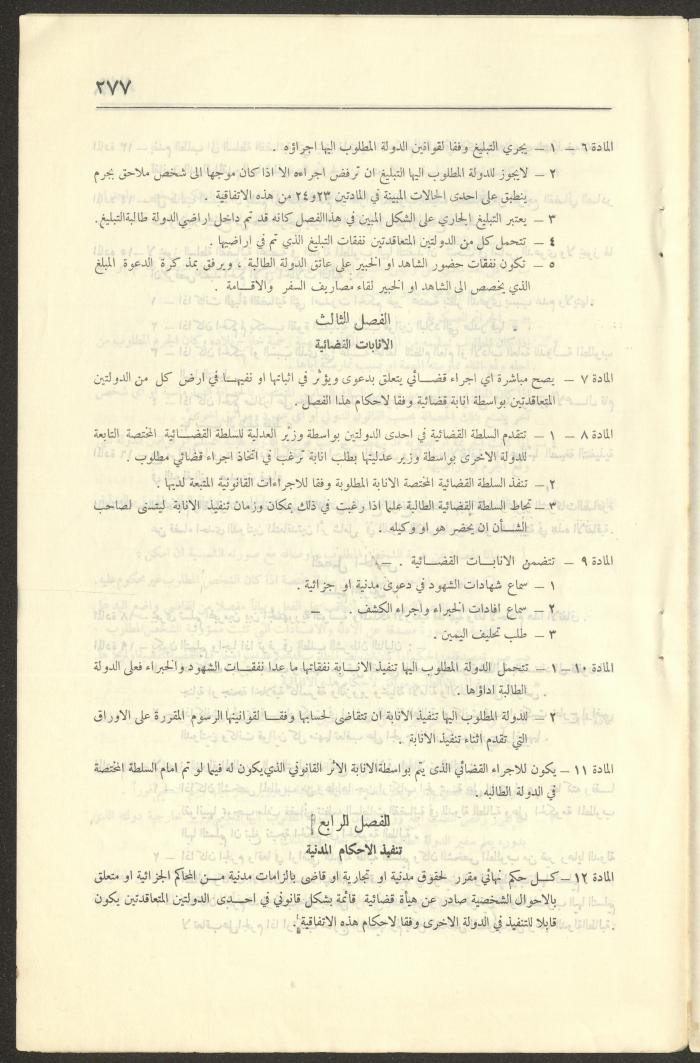 ٢٧٧
المادة ٦ – ١ – يجري التبليغ وفقا لقوانين الدولة المطلوب اليها اجراؤه .
٢ – لايجوز للدولة المطلوب اليها التبليغ ان ترفض اجراءه الا اذا كان موجها الى شخص ملاحق بجرم
ينطبق على احدى الحالات المبينة في المادتين ٢٣و٢٤ من هذه الاتفاقية .
٣ – يعتبر التبليغ الجاري على الشكل المبين في هذاالفصل كانه قد تم داخل اراضي الدولة طالبةالتبليغ.
٤ – تتحمل كل من الدولتين المتعاقدتين نفقات التبليغ الذي تم في اراضيها .
٥ – تكون نفقات حضور الشاهد او الخبير على عاتق الدولة الطالبة ، ويرفق بمذكرة الدعوة المبلغ
الذي يخصص الى الشاهد او الخبير لقاء مصاريف السفر والاقامة .
الفصل الثالث
الانابات القضائية
المادة ٧ – يصح مباشرة اي اجراء قضائي يتعلق بدعوى ويؤثر في اثباتها او نفيها في ارض كل من الدولتين
المتعاقدتين بواسطة انابة قضائية وفقا لاحكام هذا الفصل .
المادة ٨ – ١ – تتقدم السلطة القضائية في احدى الدولتين بواسطة وزير العدلية للسلطة القضائية المختصة التابعة
للدولة الاخرى بواسطة وزير عدليتها بطلب انابة ترغب في اتخاذ اجراء قضائي مطلوب .
٢ – تنفذ السلطة القضائية المختصة الانابة المطلوبة وفقا للاجراءات القانونية المتبعة لديها .
٣ – تحاط السلطة القضائية الطالبة علما اذا رغبت في ذلك بمكان وزمان تنفيذ الانابة ليتسنى لصاحب
الشأن ان يحضر هو او وكيله .
المادة ٩ – تتضمن الانابات القضائية .
١ – سماع شهادات الشهود في دعوى مدنية او جزائية .
٢ – سماع افادات الخبراء واجراء الكشف .
٣ – طلب تحليف اليمين .
المادة ١٠ – ١ – تتحمل الدولة المطلوب اليها تنفيذ الانابة نفقاتها ما عدا نفقات الشهود والخبراء فعلى الدولة
الطالبة اداؤها .
٢ – للدولة المطلوب اليها تنفيذ الانابة ان تتقاضى لحسابها وفقا لقوانينها الرسوم المقررة على الاوراق
التي تقدم اثناء تنفيذ الانابة .
المادة ١١ – يكون للاجراء القضائي الذى يتم بواسطةالانابة الاثر القانوني الذي يكون له فيما لو تم امام السلطة المختصة
في الدولة الطالبه .
الفصل الرابع
تنفيذ الاحكام المدنية
المادة ١٢ – كل حكم نهائي مقرر لحقوق مدنية او تجارية او قاضى بالزامات مدنية من المحاكم الجزائية او متعلق
بالاحوال الشخصية صادر عن هيأة قضائية قائمة بشكل قانوني في احدى الدولتين المتعاقدتين يكون
قابلا للتنفيذ في الدولة الاخرى وفقا لاحكام هذه الاتفاقية .